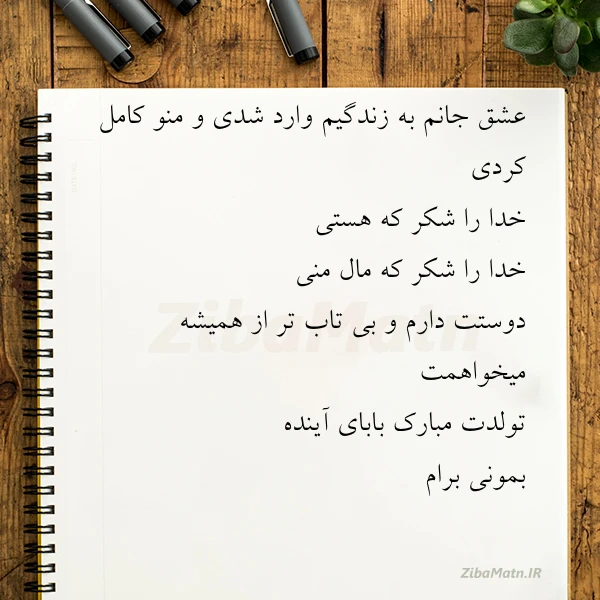 عشق جانم به زندگیم وارد شدی و منو کامل
کردی
خدا را شکر که هستی
خدا را شکر که مال منی
دوستت دارم و بی تاب تر از همیشه
میخواهمت
تولدت مبارک بابای آینده
بمونی برام
ZibaMatn
ZibaMatn.IR